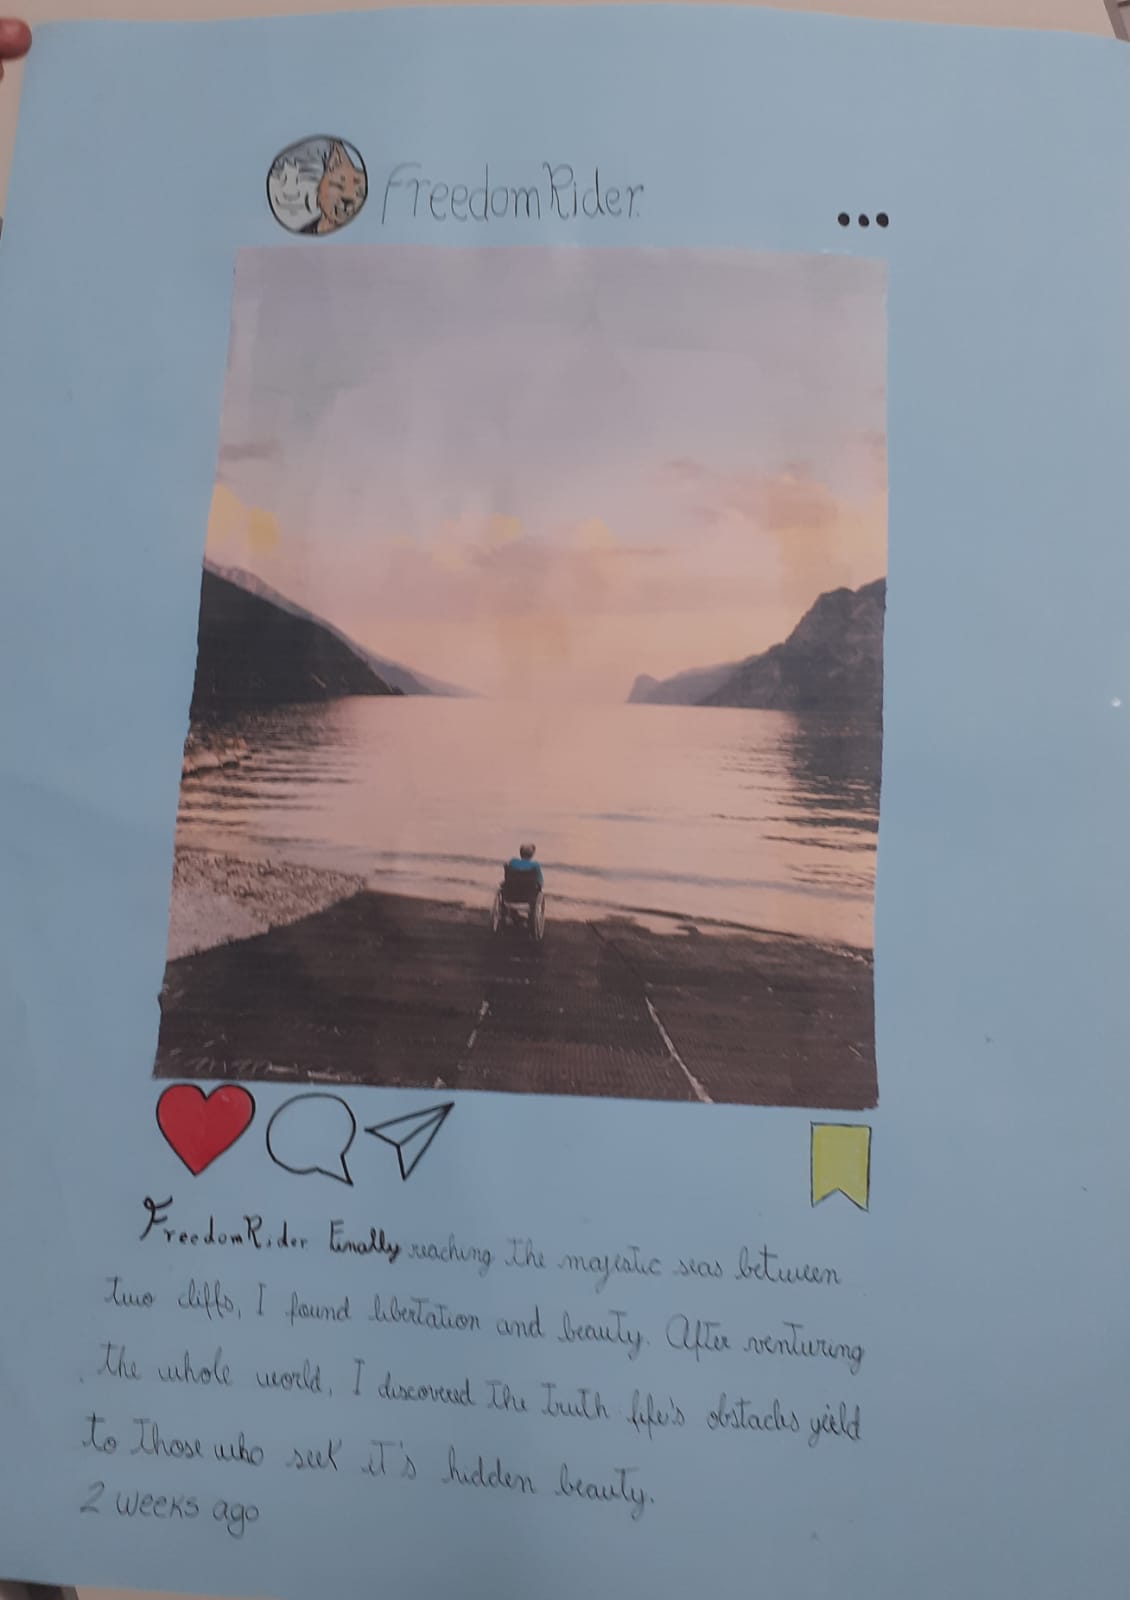 FreedomRider
FreedomRider Finally reaching the majestic seas between
two cliffs, I found libertation and beauty. After venturing
the whole world, I discovered the truth life's obstacls yield
to those who seek it's hidden beauty.
2 weeks ago